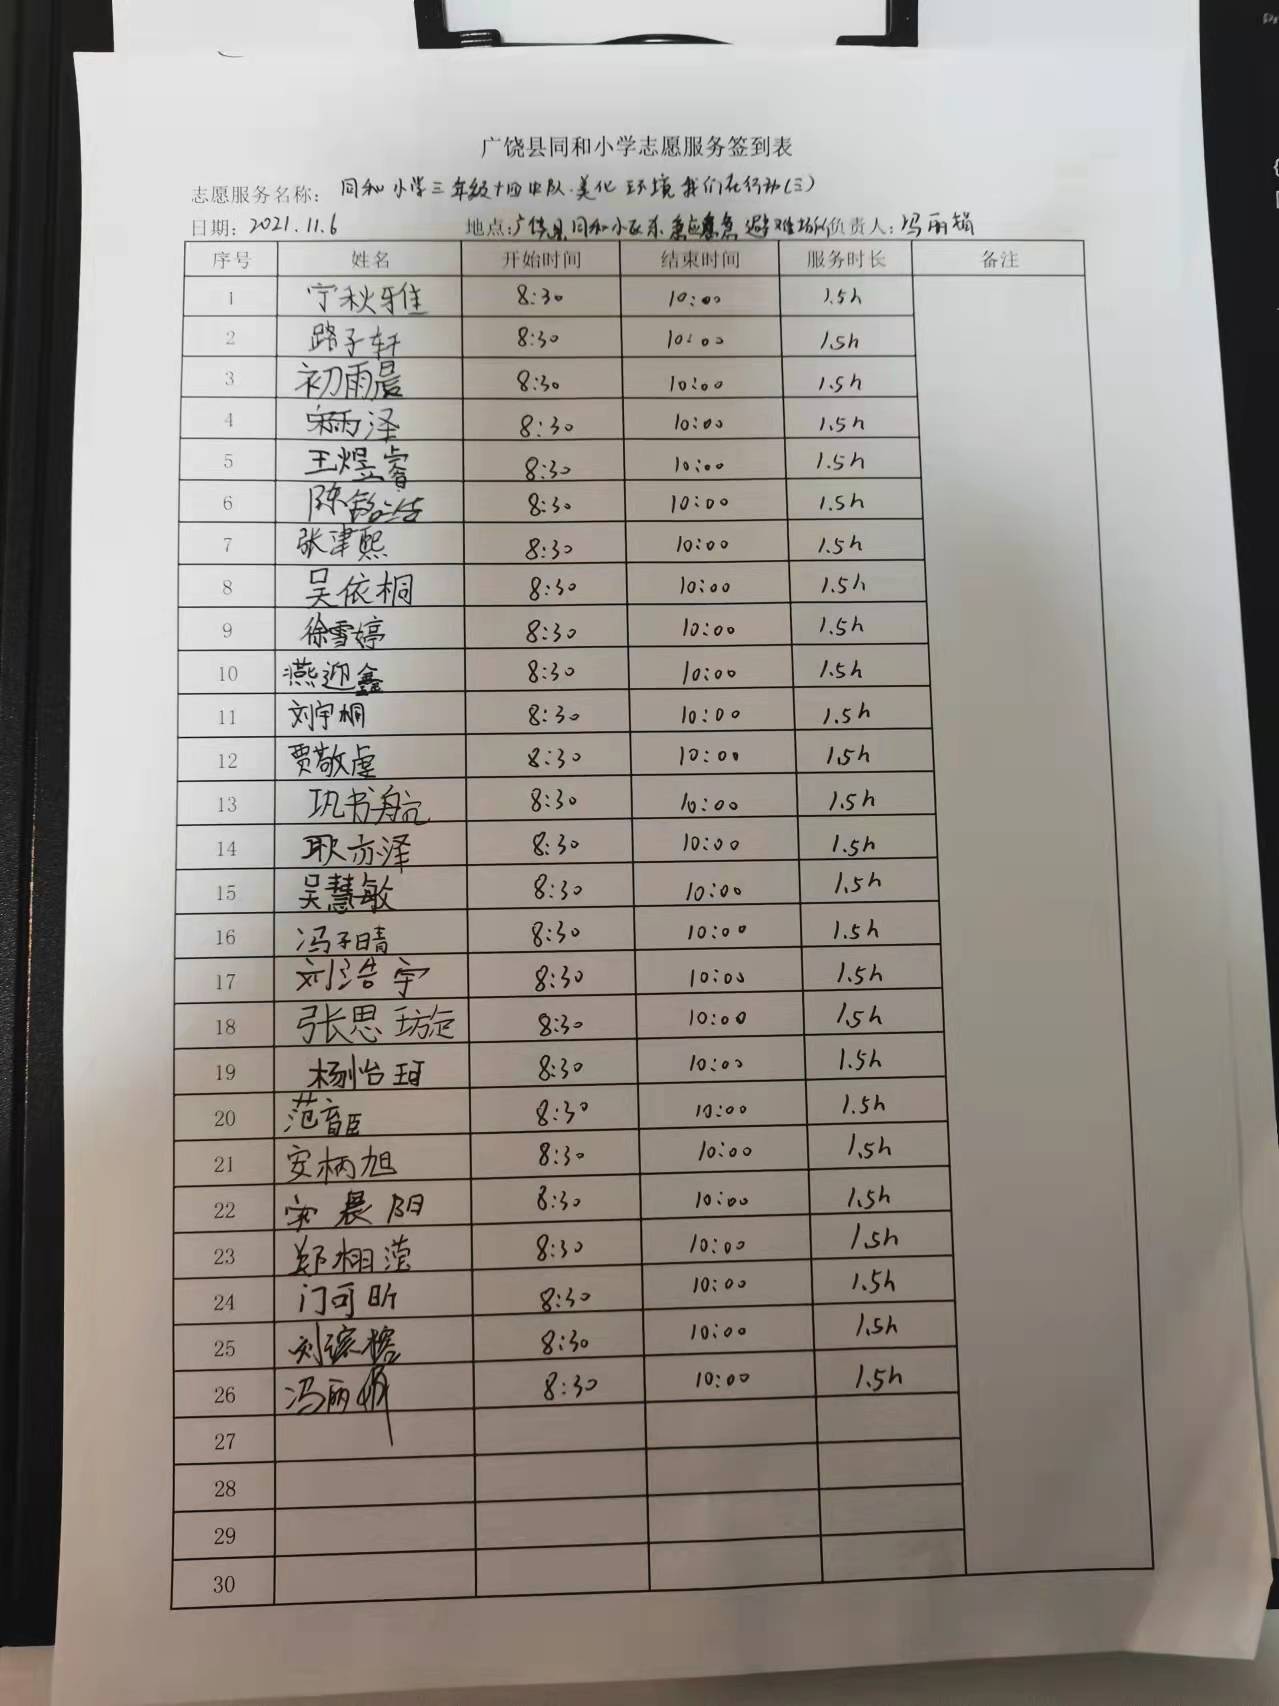 广饶县同和小学志愿服务签到表
志愿服务名称: 同和小学三年级十四中队·美化环境我们在行动(三)
日期: 2021.11.6 地点:广饶县同和小区东 应急避难场所负责人:冯丽娟
序号 姓名 开始时间 结束时间 服务时长 备注
1 宁秋雅 8:30 10:00 1.5h
2 路子轩 8:30 10:00 1.5h
3 初雨晨 8:30 10:00 1.5h
4 宋雨泽 8:30 10:00 1.5h
5 王煜睿 8:30 10:00 1.5h
6 陈铭洁 8:30 10:00 1.5h
7 张津熙 8:30 10:00 1.5h
8 吴依桐 8:30 10:00 1.5h
9 徐雪婷 8:30 10:00 1.5h
10 燕迎鑫 8:30 10:00 1.5h
11 刘宇桐 8:30 10:00 1.5h
12 贾敬虔 8:30 10:00 1.5h
13 巩书航 8:30 10:00 1.5h
14 耿亦泽 8:30 10:00 1.5h
15 吴慧敏 8:30 10:00 1.5h
16 冯子晴 8:30 10:00 1.5h
17 刘浩宇 8:30 10:00 1.5h
18 张思璇 8:30 10:00 1.5h
19 杨怡珂 8:30 10:00 1.5h
20 范育臣 8:30 10:00 1.5h
21 安柄旭 8:30 10:00 1.5h
22 宋晨阳 8:30 10:00 1.5h
23 郑栩滢 8:30 10:00 1.5h
24 门可昕 8:30 10:00 1.5h
25 刘 8:30 10:00 1.5h
26 冯丽娟 8:30 10:00 1.5h
27
28
29
30